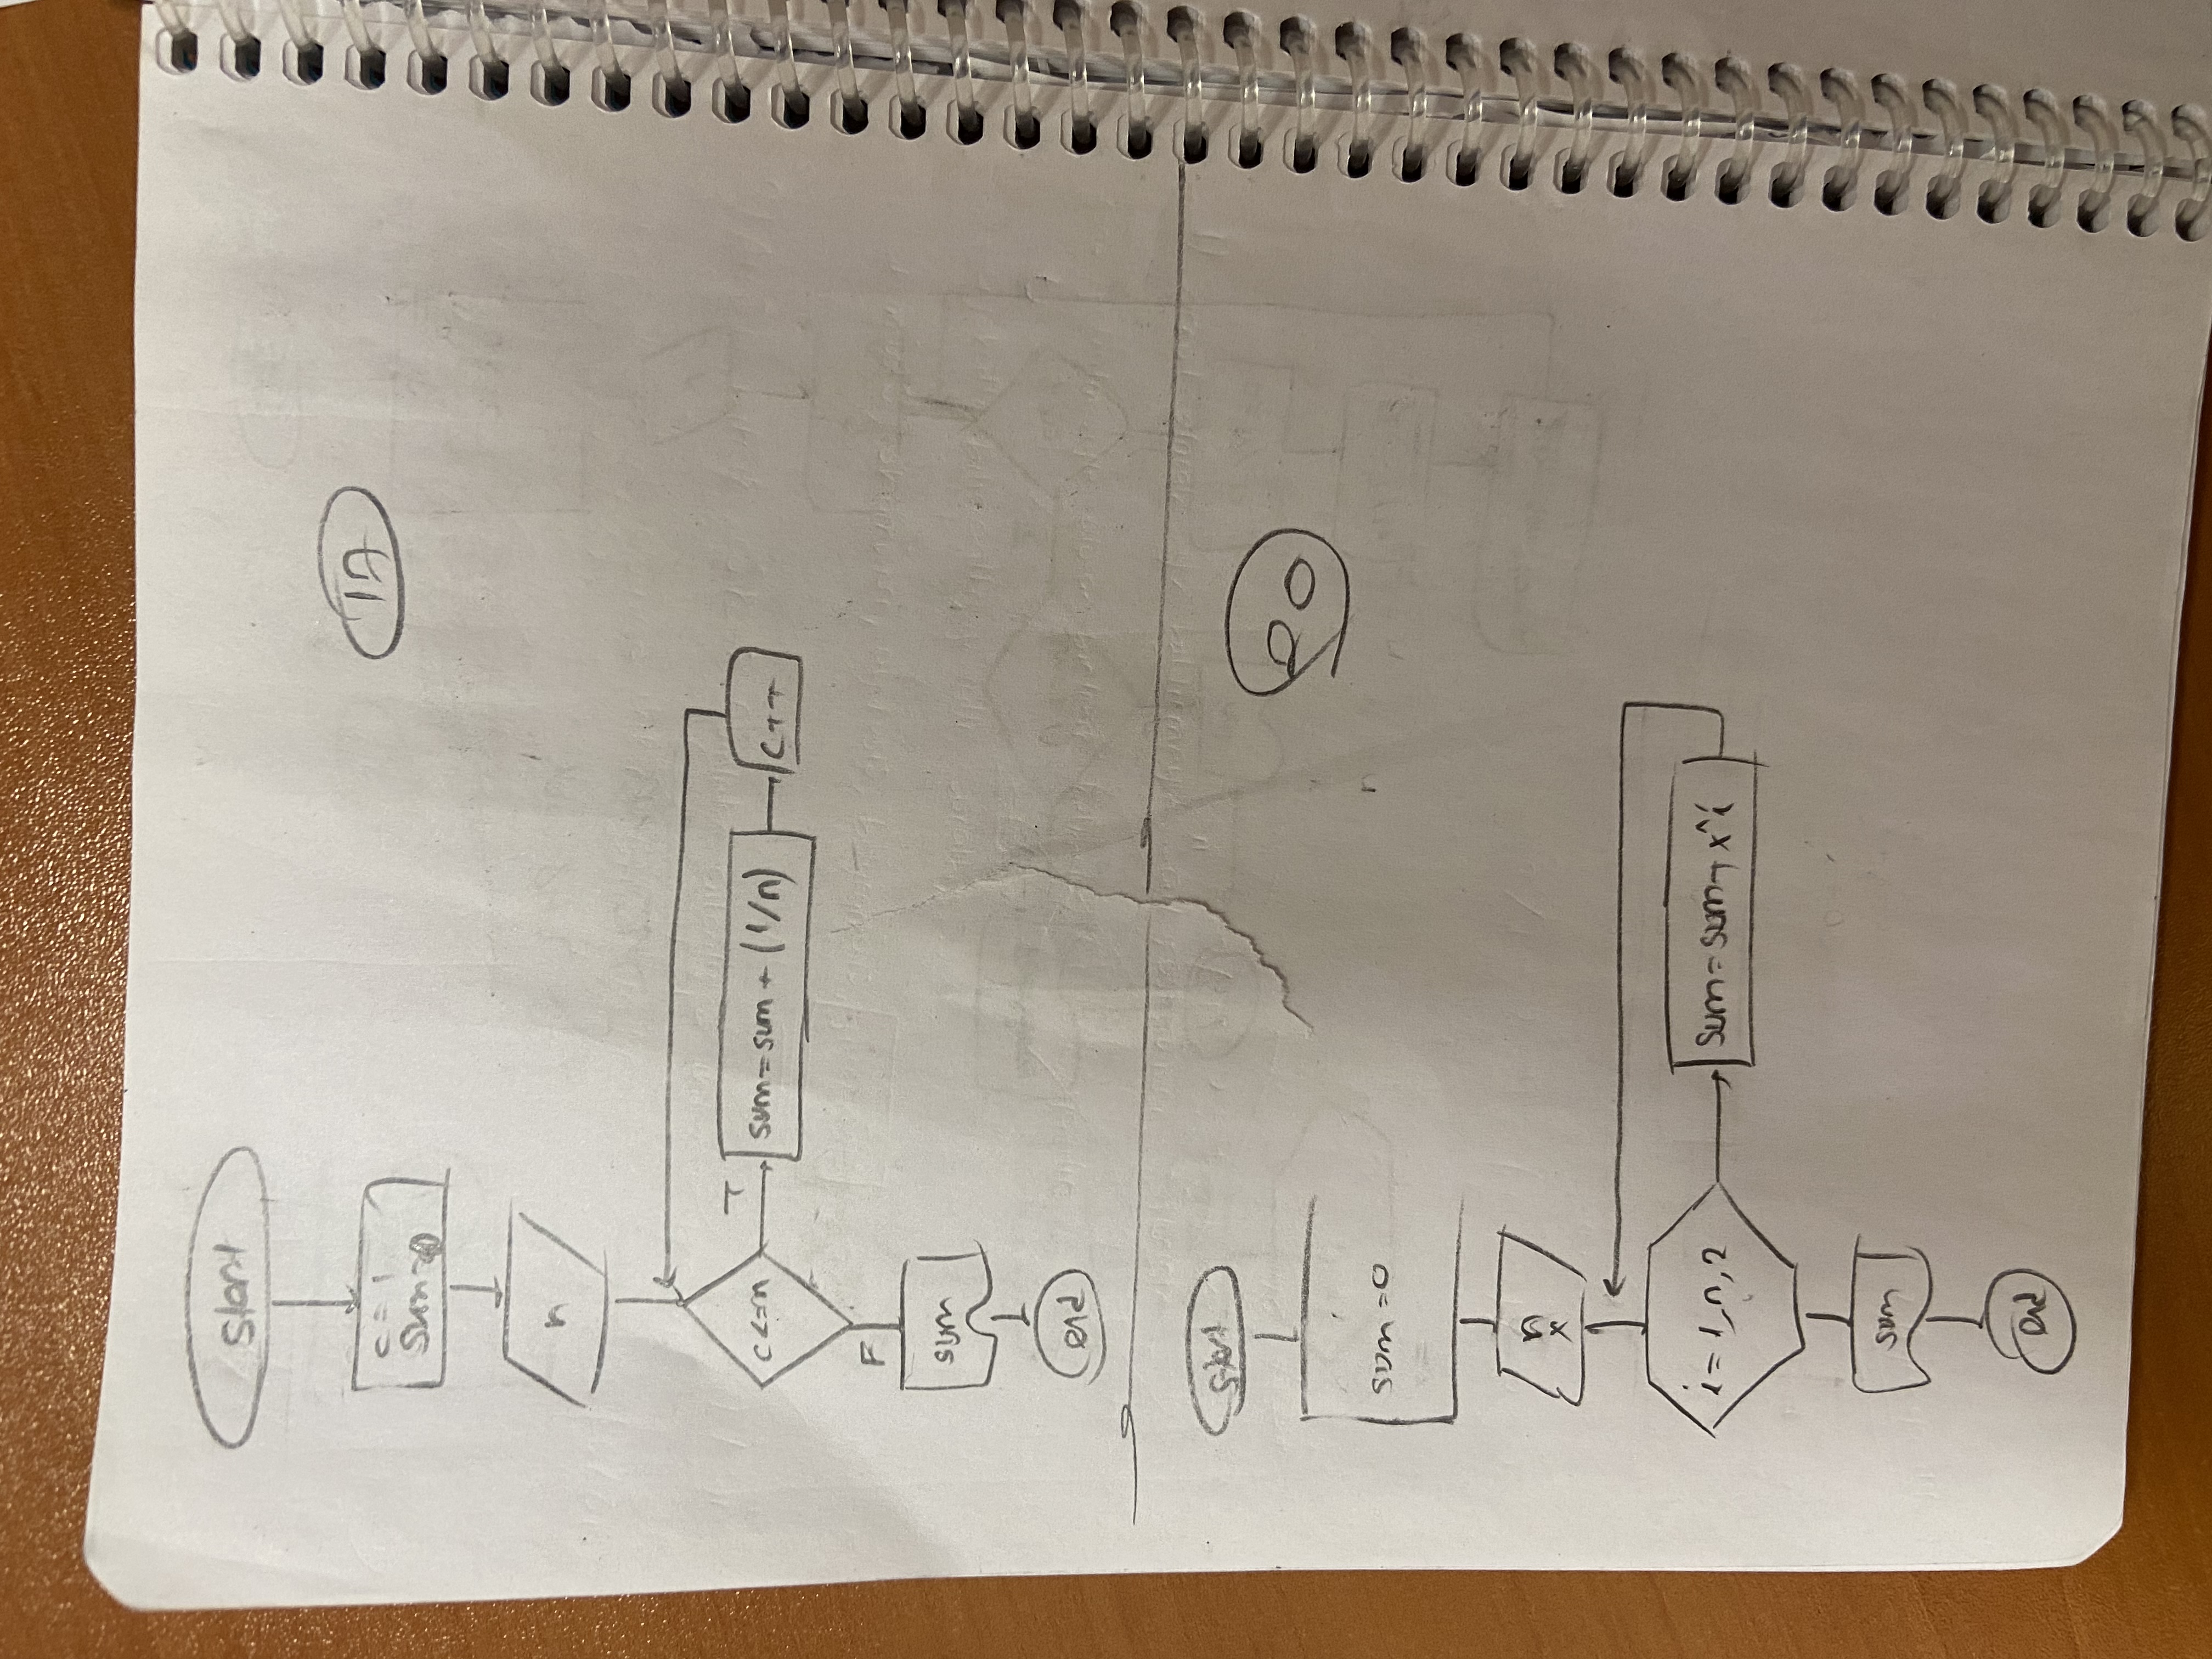 17
Start
c = 1
sum=0
n
c<=n
T
sum=sum + (1/n)
c++
F
sum
end
20
Start
sum=0
n
x
i = 1, n, 2
sum=sum+x^i
sum
end